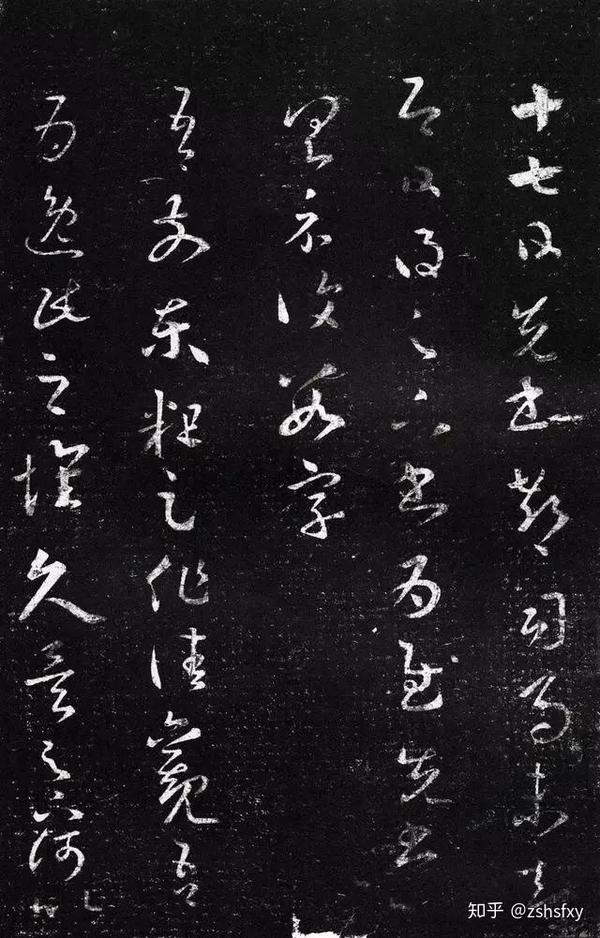 十七日先書郗司馬未去
即日得足下書為慰先書以
具示復數字
吾前東粗足作佳觀吾
為逸民之懷久矣足下何以
知乎 @zshsfxy